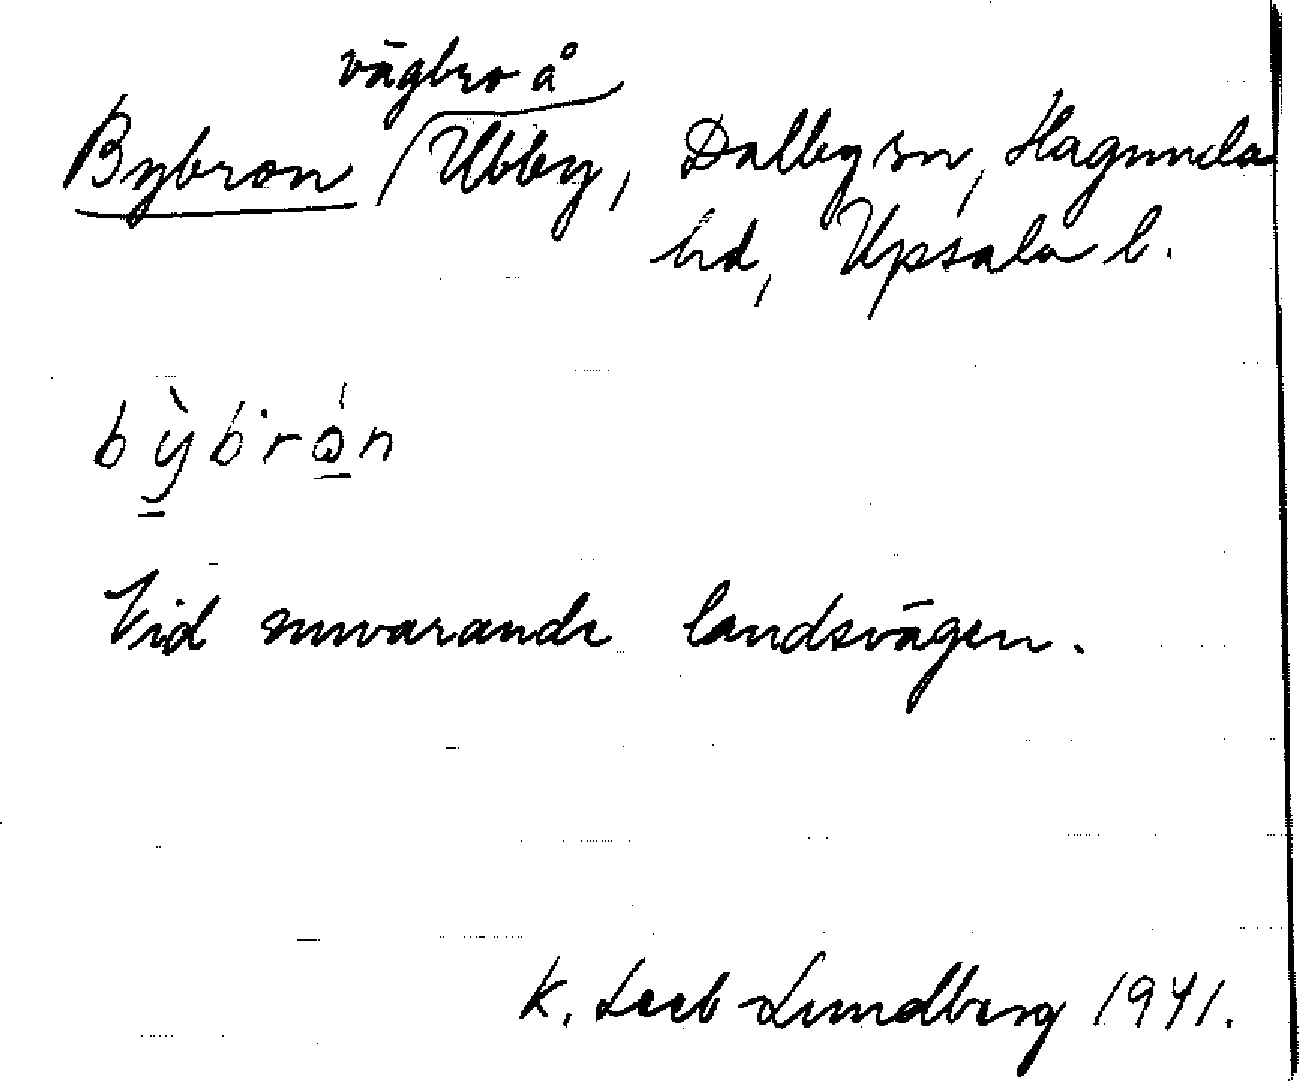 vägbro å
Bybron Ubby, Dalby sn, Hagunda
hd, Upsala l.
bỳbrǫ́n
Vid nuvarande landsvägen.
K. Leeb-Lundberg 1941.